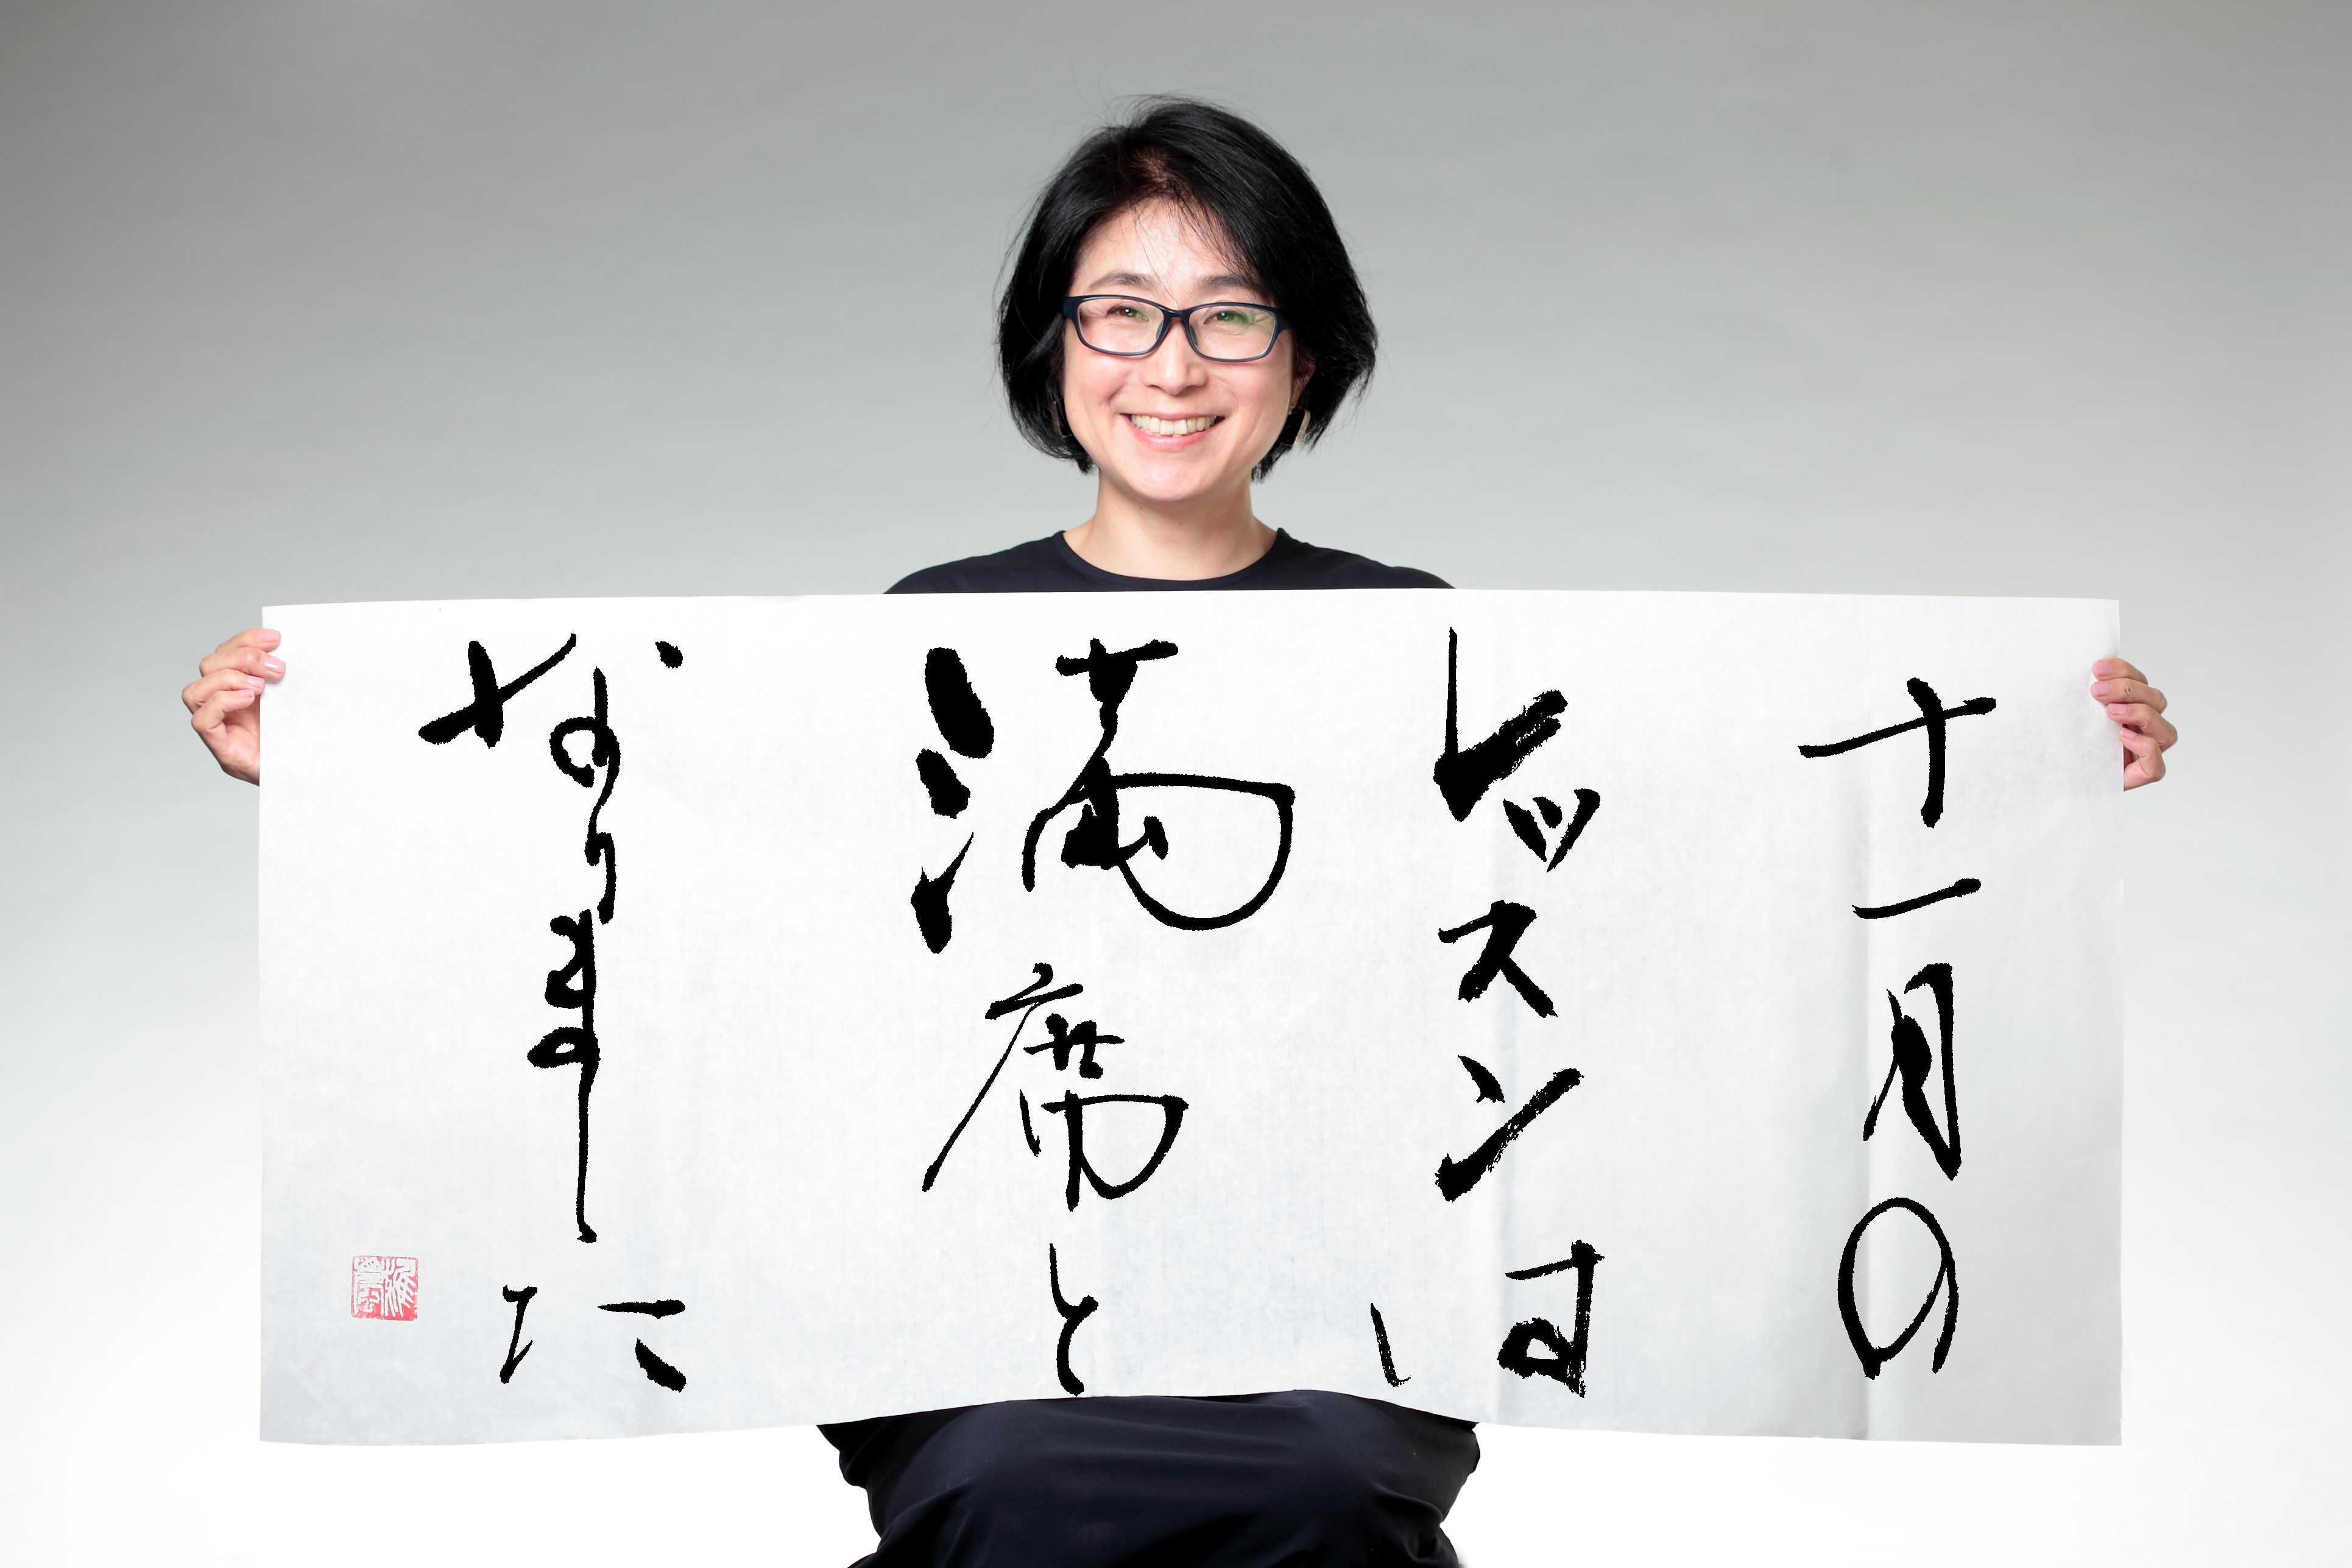 十一月の
レッスンは
満席と
なりました